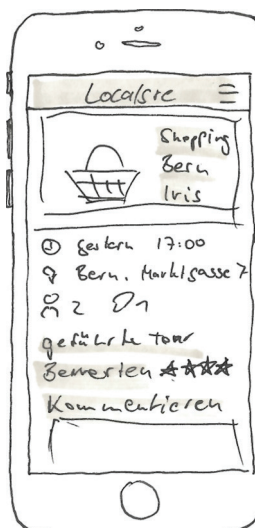 Localsre
Shopping
Bern
Iris
gestern 17:00
Bern, Marktgasse 7
2 1
geführte Tour
Bewerten ★★★★
Kommentieren